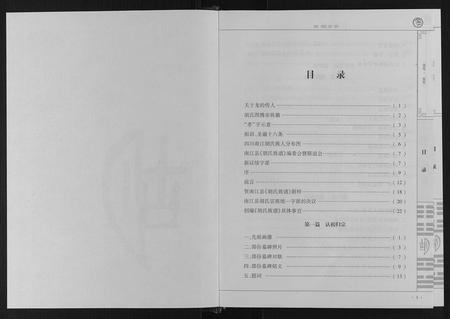 目 录
关于龙的传人 （1）
胡氏图腾亲族徽 （2）
“孝”字示意 （3）
祖训、圣谕十六条 （5）
四川南江胡氏族人分布图 （6）
南江县《胡氏族谱》编委会暨联谊会 （7）
新议续字派 （7）
序 （9）
前言 （12）
贺南江县《胡氏族谱》创刊 （18）
南江县胡氏宗族统一字派的决议 （20）
创编《胡氏族谱》具体事宜 （22）
第一篇 认祖归宗
一、先祖画像 （1）
二、部份墓碑照片 （3）
三、部份墓碑对联 （7）
四、部份墓碑铭文 （9）
五、题词 （13）
目录